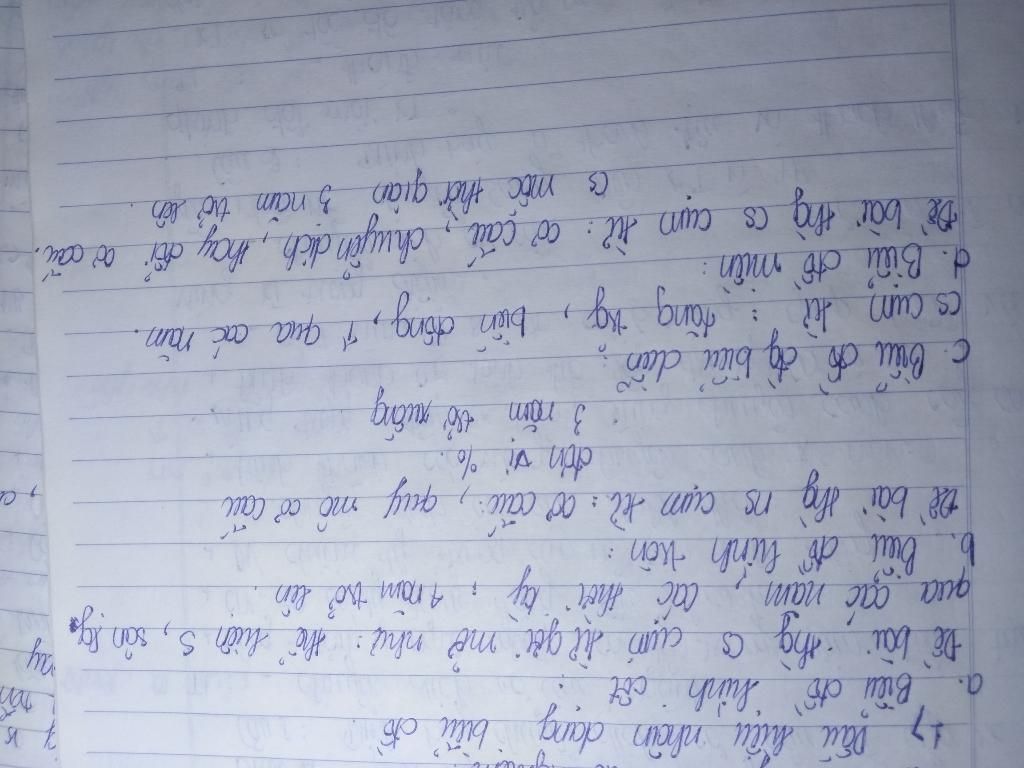 17 Dấu hiệu nhận dạng biểu đồ.
a. Biểu đồ hình cột:
Đề bài thg cs cụm từ gợi mở như: thể hiện S, sản lg
qua các năm, các thời kỳ, 4 năm trở lên.
b. Biểu đồ hình tròn:
Đề bài thg ns cụm từ: cơ cấu, quy mô cơ cấu
đơn vị %.
3 năm trở xuống
c. Biểu đồ đg biểu diễn:
cs cụm từ: tăng trg, biến động, ↑ qua các năm.
d. Biểu đồ miền:
Đề bài thg cs cụm từ: cơ cấu, chuyển dịch, thay đổi cơ cấu.
cs mốc thời gian 3 năm trở lên.